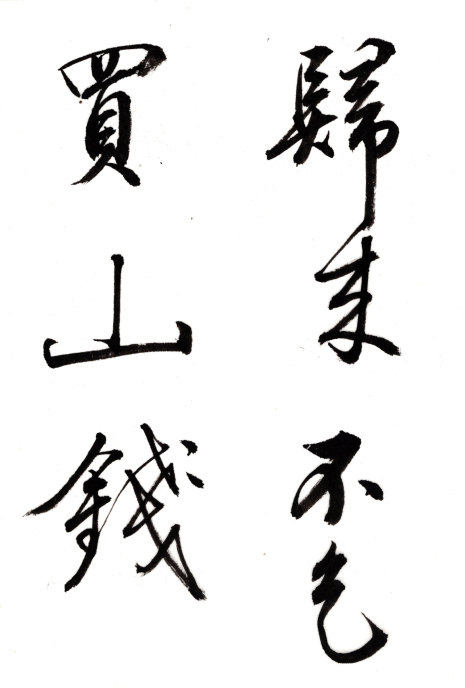 歸來不乞
買山錢